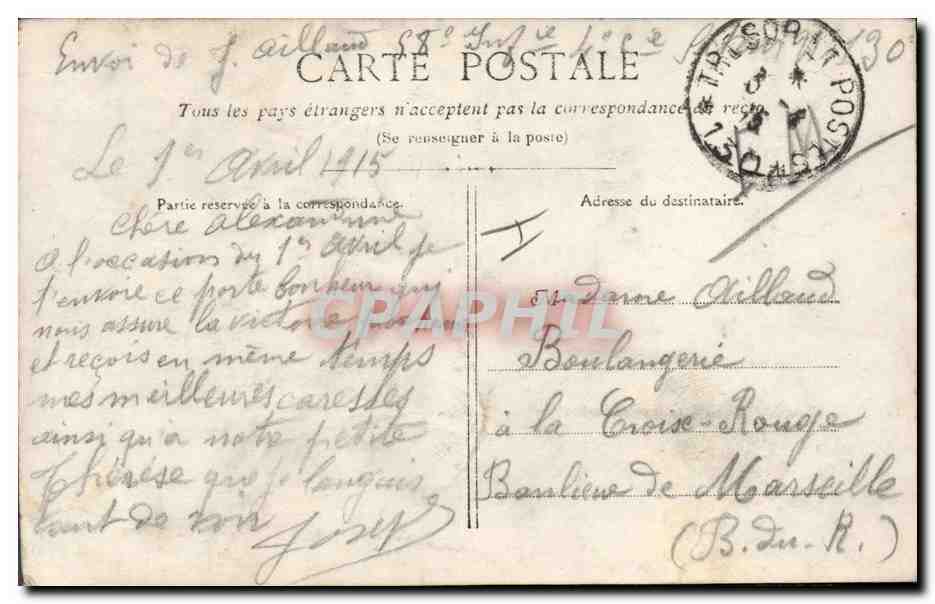 Envoi de J. Aillaud 58e Infie 130
CARTE POSTALE
Tous les pays étrangers n'acceptent pas la correspondance au recto
(Se renseigner à la poste)
TRESOR ET POSTES
* 130 *
Le 1er Avril 1915
Partie réservée à la correspondance.
Chère Alexandrine
A l'occasion du 1er Avril je
t'envoie ce porte bonheur qui
nous assure la victoire
et reçois en même temps
mes meilleures caresses
ainsi qu'à notre petite
Thérèse que je languis
tant de voir
Joseph
Adresse du destinataire.
Madame Aillaud
Boulangerie
à la Croix-Rouge
Banlieue de Marseille
(B.-du-R.)
CPAPHIL